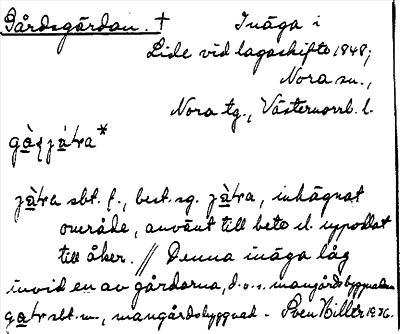 Gårdsgärdan. † Inäga i
Lide vid lagaskifte 1848;
Nora sn.,
Nora tg., Västernorrl. l.
gàʂjàtra*
jàtra sbt. f., best. sg. jàtra, inhägnat
område, använt till bete el. uppodlat
till åker. // Denna inäga låg
invid en av gårdarna, d.v.s. mangårdsbyggnaderna
gaʈ sbt. m., mangårdsbyggnad. - Sven Billtr 1936.